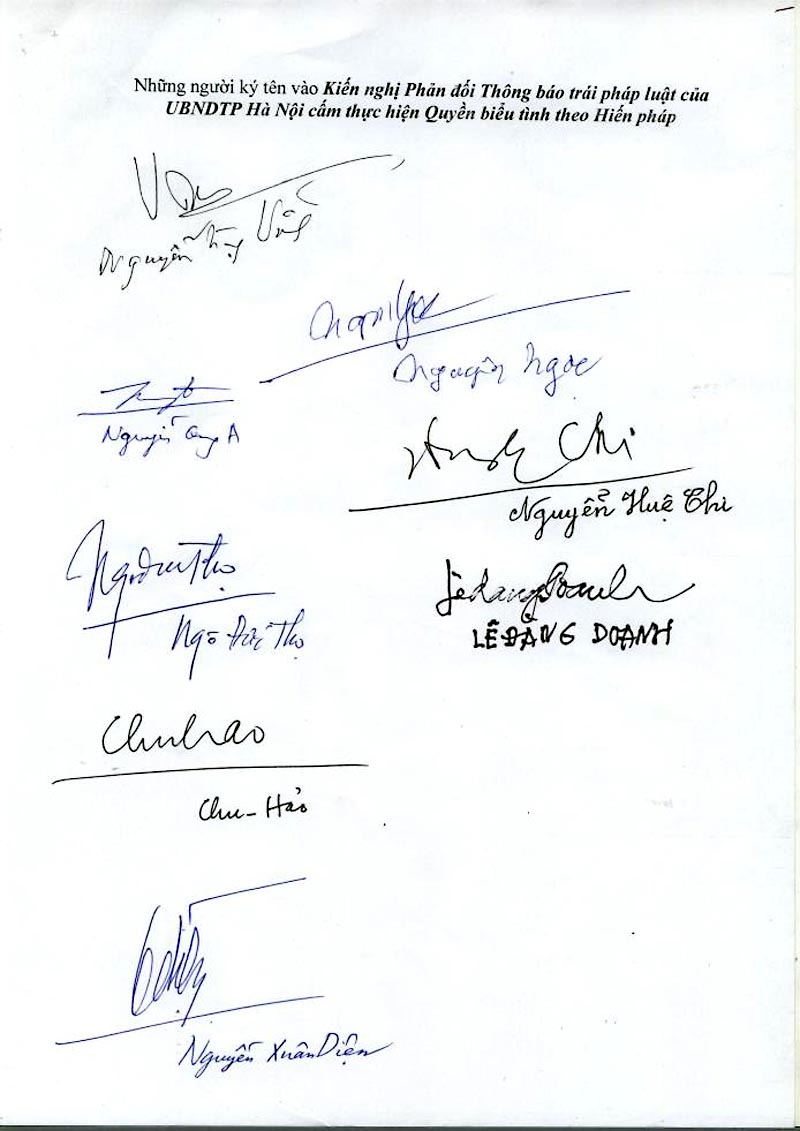 Những người ký tên vào Kiến nghị Phản đối Thông báo trái pháp luật của
UBNDTP Hà Nội cấm thực hiện Quyền biểu tình theo Hiến pháp
Nguyễn
Nguyên Ngọc
Nguyễn Quang A
Chi
Nguyễn Huệ Chi
Ngô Đức Thọ
Lê Đăng Doanh
LÊ ĐĂNG DOANH
Chu Hao
Chu - Hảo
Nguyễn Xuân Diện